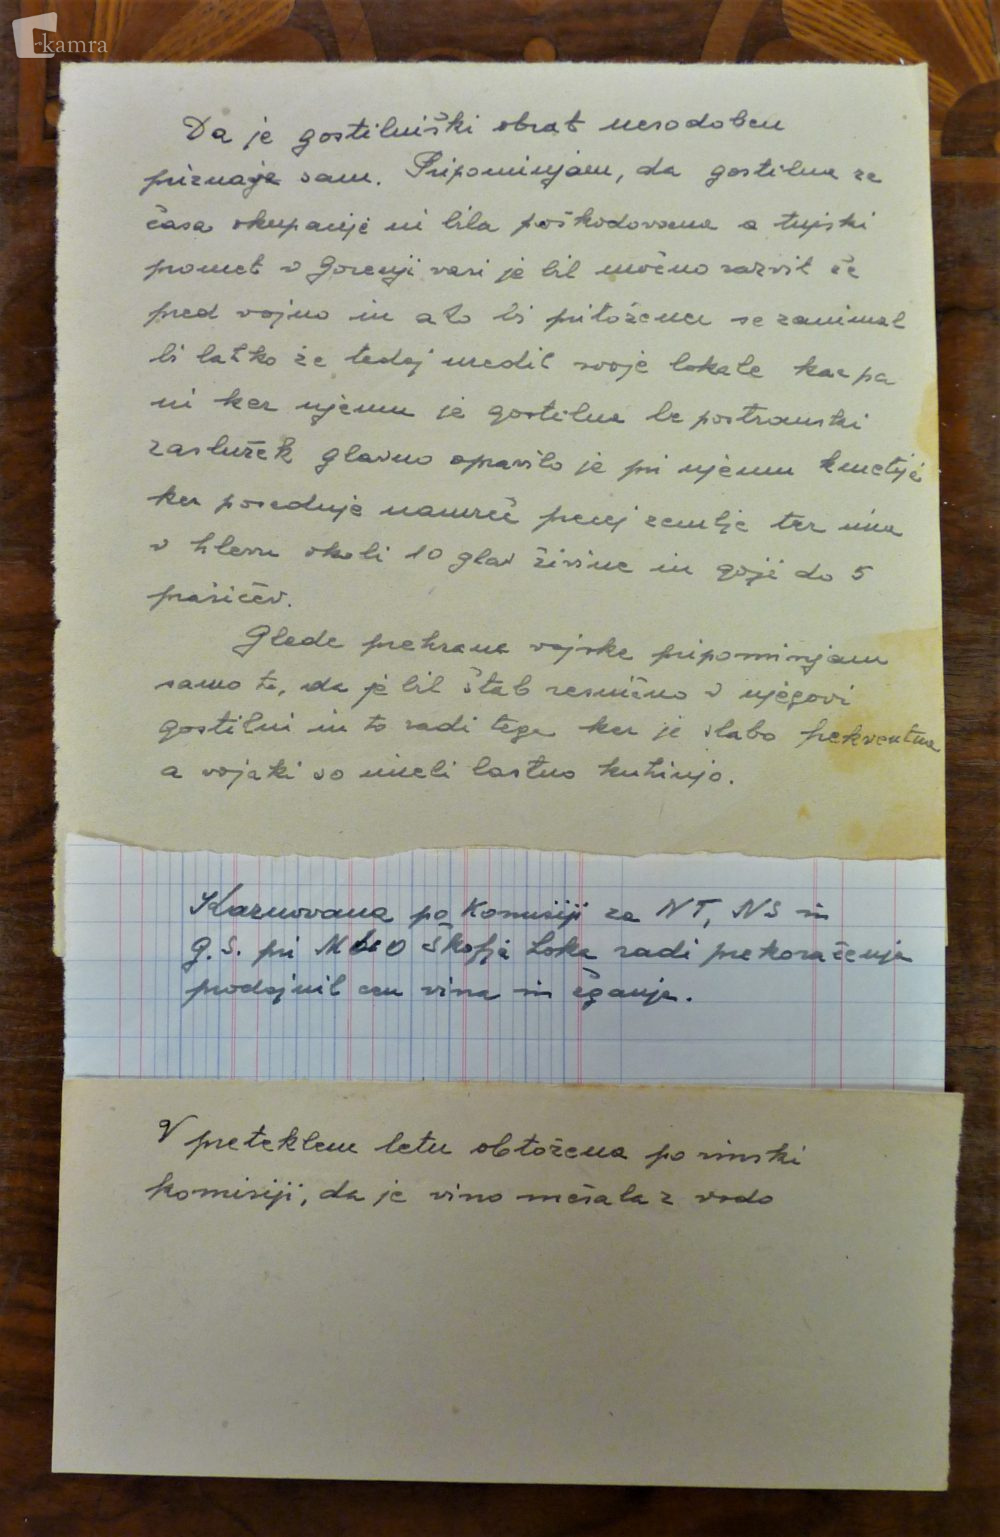 kamra
Da je gostilniški obrat nesodoben
priznaje sam. Pripominjam, da gostilna za
časa okupacije ni bila poškodovana a tujski
promet v Gorenji vasi je bil močno razvit že
pred vojno in ako bi pritoženec se zanimal
bi lahko že tedaj uredil svoje lokale kar pa
ni ker njemu je gostilna le postranski
zaslužek glavno opravilo je pri njemu kmetije
ker poseduje namreč precej zemlje ter ima
v hlevu okoli 10 glav živine in goji do 5
prašičev.
Glede prehrane vojske pripominjam
samo to, da je bil štab resnično v njegovi
gostilni in to radi tega ker je slabo frekventna
a vojaki so imeli lastno kuhinjo.
Kaznovana po Komisiji za NT, NS in
g.s. pri MLO Škofja Loka radi prekoračenja
prodajnih cen vina in žganja.
V preteklem letu obtožena po vinski
komisiji, da je vino mešala z vodo